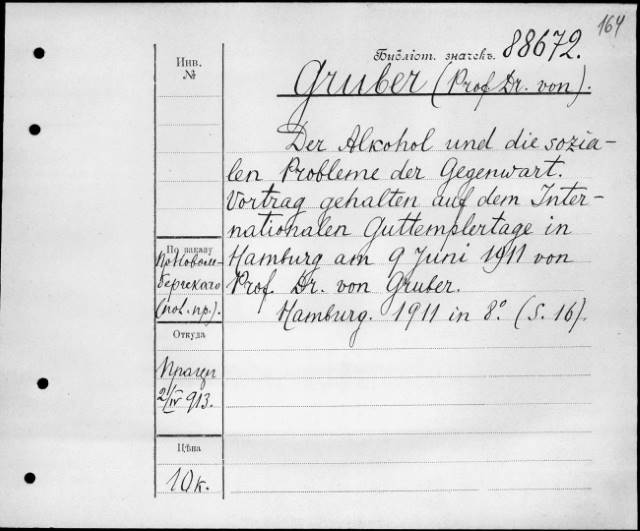 164
Библіот. значекъ. 88672.
Инв.
№
Gruber (Prof. Dr. von).
Der Alkohol und die sozia-
len Probleme der Gegenwart.
Vortrag gehalten auf dem Inter-
nationalen Guttemplertage in
Hamburg am 9 Juni 1911 von
Prof. Dr. von Gruber.
Hamburg. 1911 in 8.° (S. 16).
По заказу
Пр. Новом-
бергскаго
(пол. пр.).
Откуда
2/IV 913.
Цѣна
10 к.